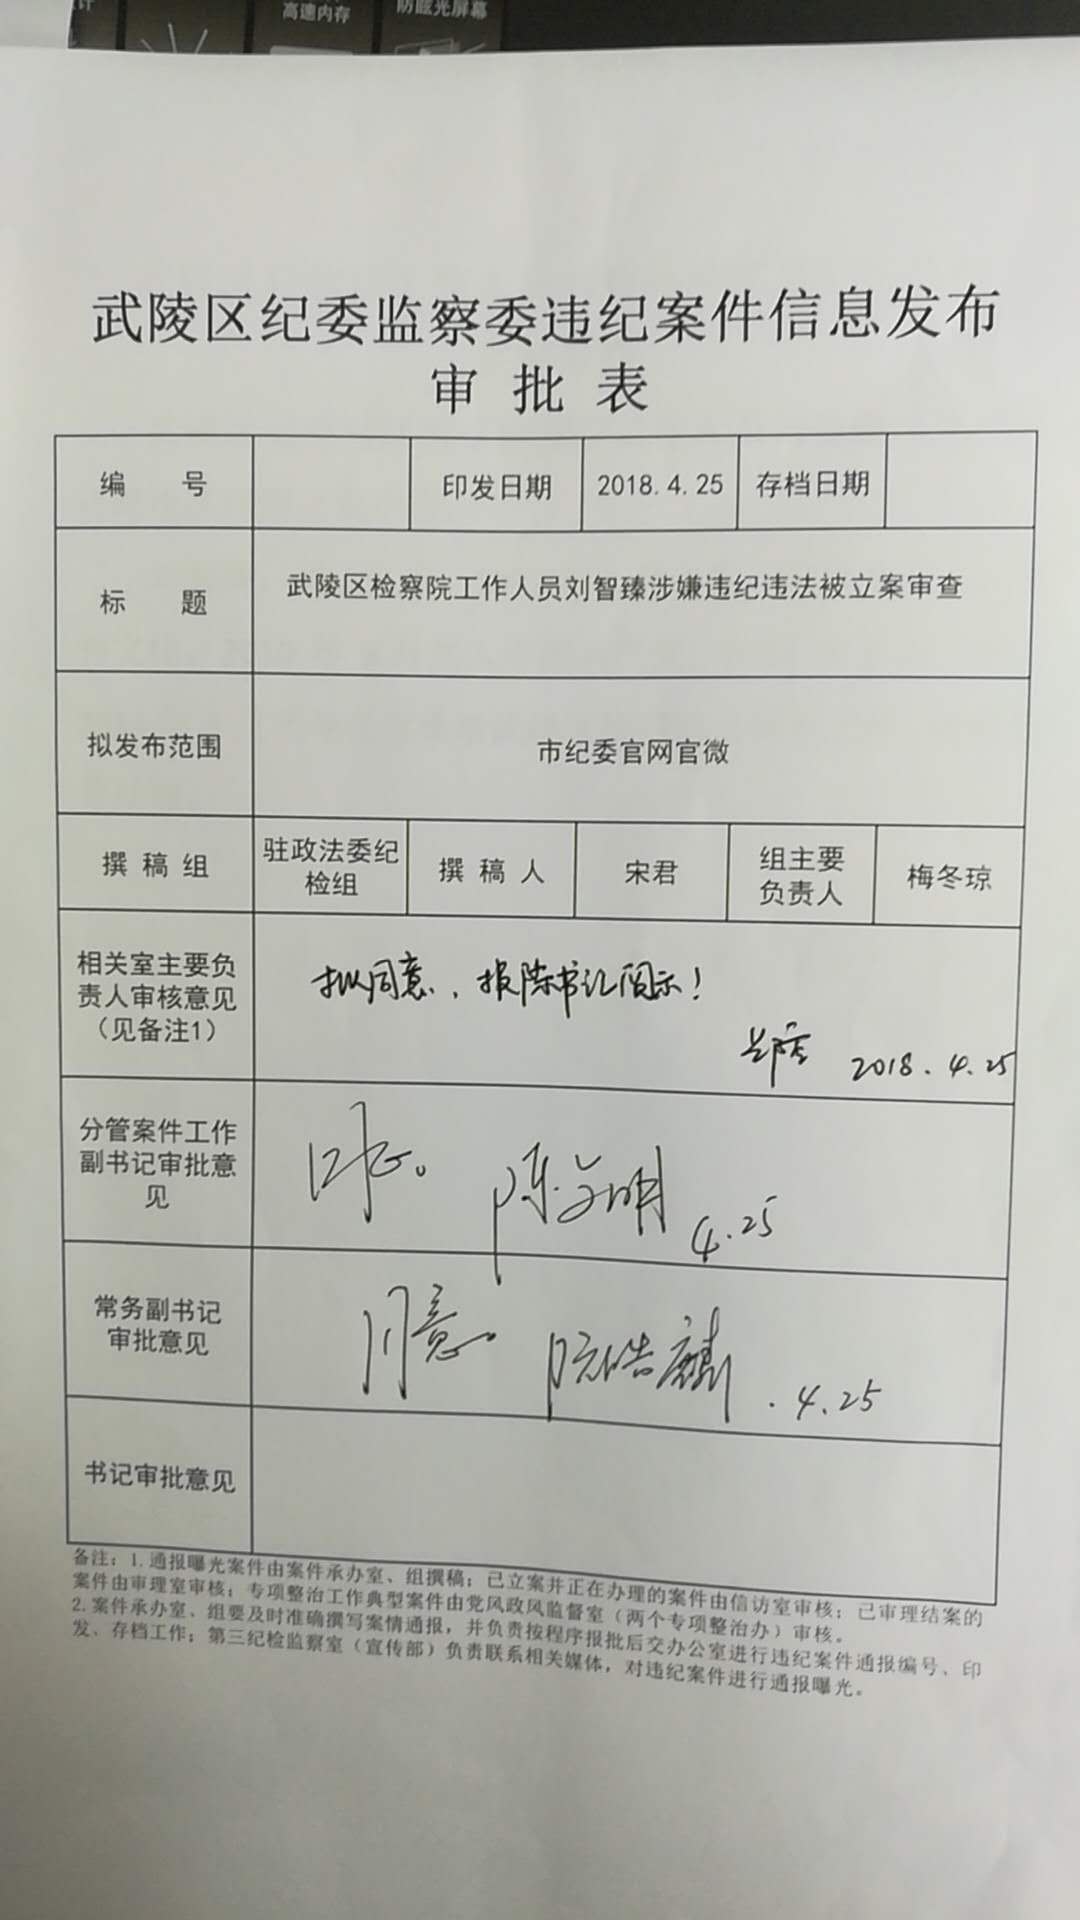 高速内存
防眩光屏幕
武陵区纪委监察委违纪案件信息发布
审 批 表
编 号 印发日期 2018.4.25 存档日期
标 题 武陵区检察院工作人员刘智臻涉嫌违纪违法被立案审查
拟发布范围 市纪委官网官微
撰 稿 组 驻政法委纪检组 撰 稿 人 宋君 组主要负责人 梅冬琼
相关室主要负
责人审核意见
（见备注1）
拟同意，报陈书记阅示！
2018.4.25
分管案件工作
副书记审批意
见
4.25
常务副书记
审批意见
同意 .4.25
书记审批意见
备注：1.通报曝光案件由案件承办室、组撰稿；已立案并正在办理的案件由信访室审核；已审理结案的
案件由审理室审核；专项整治工作典型案件由党风政风监督室（两个专项整治办）审核。
2.案件承办室、组要及时准确撰写案情通报，并负责按程序报批后交办公室进行违纪案件通报编号、印
发、存档工作；第三纪检监察室（宣传部）负责联系相关媒体，对违纪案件进行通报曝光。